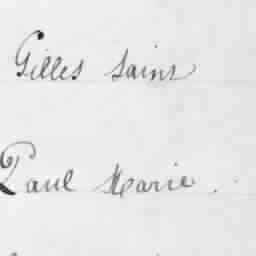 Gilles Saint
Paul Marie.